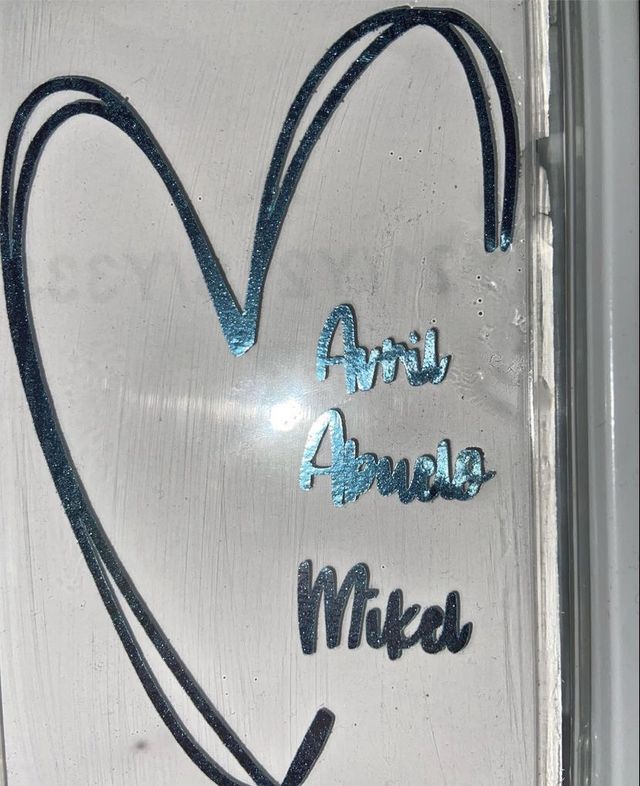 Avril
Abuelo
Mikel